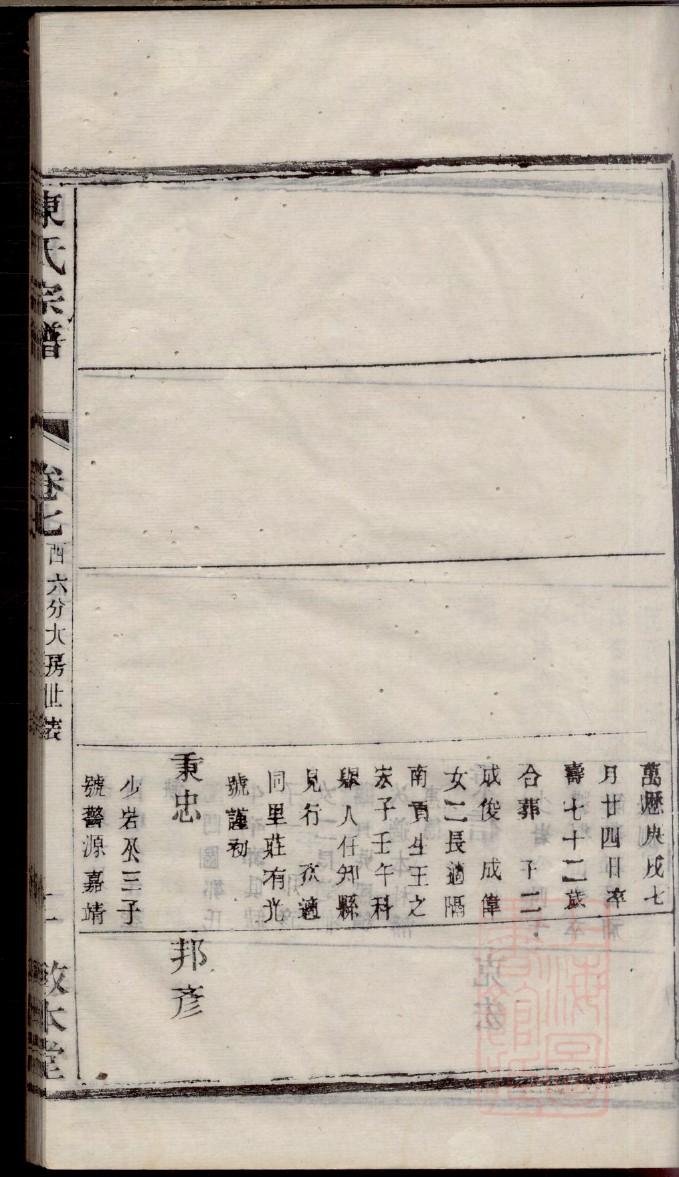 萬歷庚戌七
月廿四日卒
壽七十二歲
合葬 子二
成俊 成偉
女二長適隔
南貢生王之
宏子壬午科
舉人任知縣
見行 次適
同里莊有光
號謹初
秉忠
少岩公三子
號警源嘉靖
邦彥
陳氏宗譜
卷七
西六分大房世表
二
敦本堂